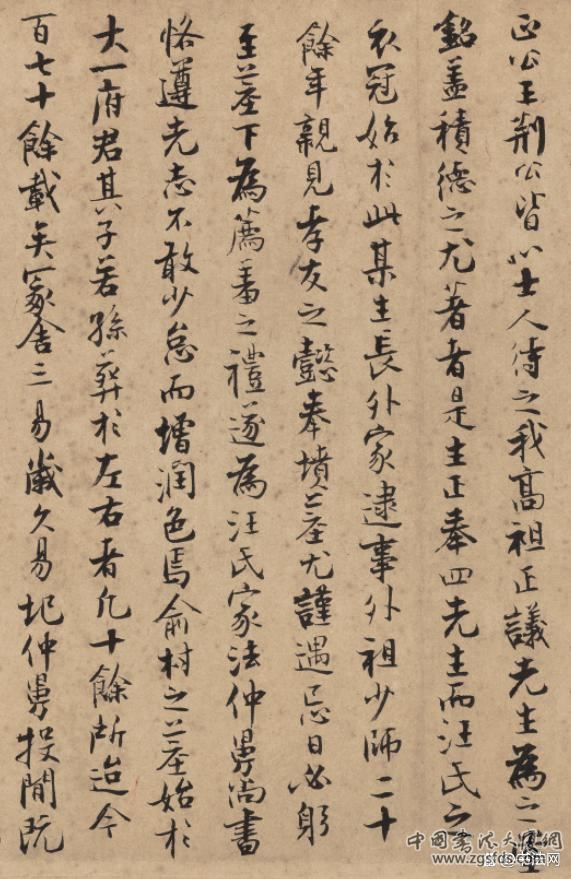 正公王荆公皆以士人待之我高祖正議先生為之
銘盖積德之尤著者是生正奉四先生而汪氏之
衣冠始於此某生長外家逮事外祖少師二十
餘年親見孝友之懿奉墳墓尤謹遇忌日必躬
至墓下為薦羞之禮遂為汪氏家法仲舅尚書
恪遵先志不敢少怠而增潤色焉俞村之墓始於
大一府君其子若孫葬於左右者凡十餘所迨今
百七十餘載矣冢舍三易歲久易圮仲舅投閒既
中國書法大字網
www.zgsfds.com